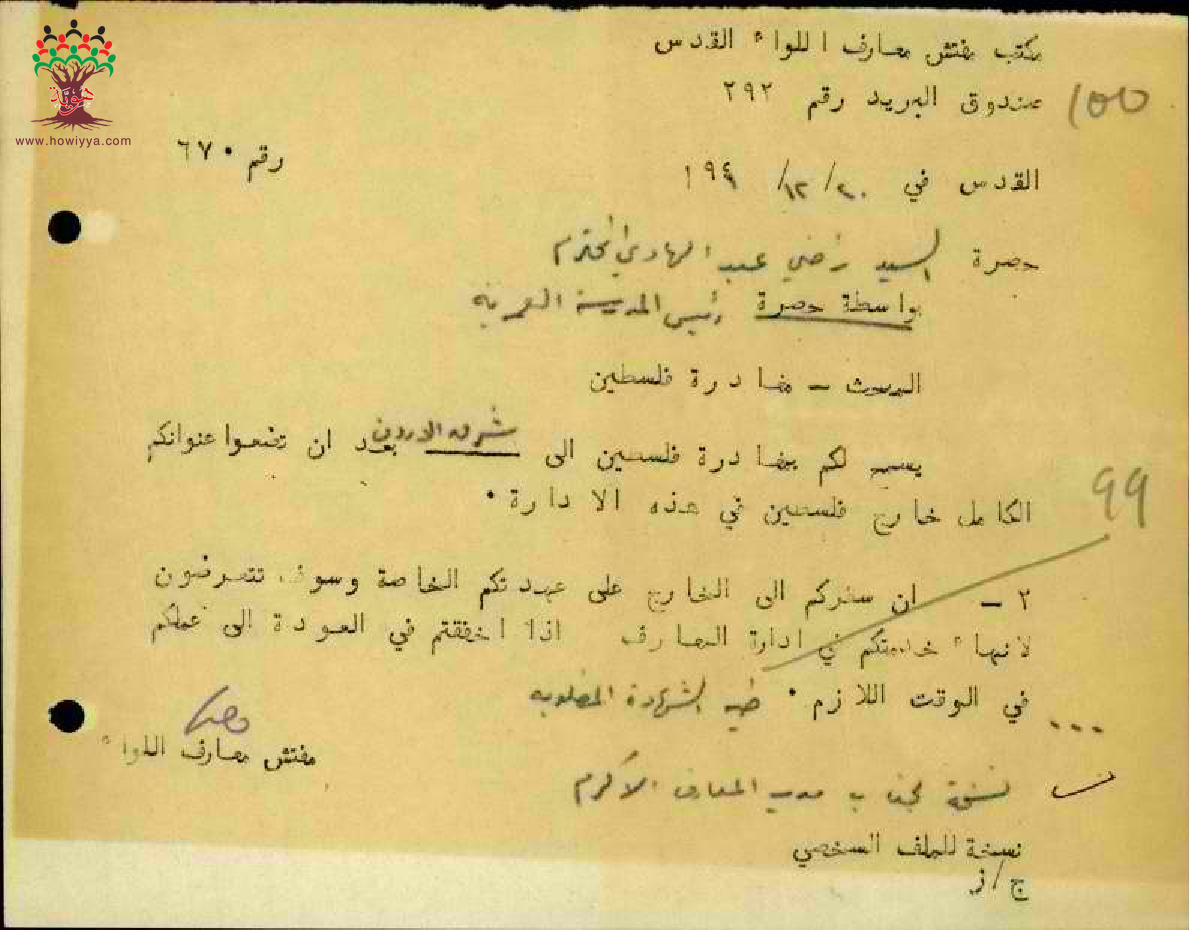 هوية
www.howiyya.com
مكتب مفتش معارف اللواء القدس
صندوق البريد رقم ٢٩٢
100
رقم ٦٧٠
القدس في ٢٠/١٢/١٩٤
حضرة السيد راضي عبد الهادي المحترم
بواسطة حضرة رئيس المدرسة العمرية
البحث - مغادرة فلسطين
يسمح لكم بمغادرة فلسطين الى شرق الاردن بعد ان تضعوا عنوانكم
99
الكامل خارج فلسطين في هذه الادارة .
٢ - ان سفركم الى الخارج على عهدتكم الخاصة وسوف تتعرضون
لانهاء خدمتكم في ادارة المعارف اذا اخفقتم في العودة الى عملكم
في الوقت اللازم . طيه الشهادة المطلوبة
مفتش معارف اللواء
نسخة لجناب مدير المعارف الاكرم
نسخة للملف الشخصي
ج/ز